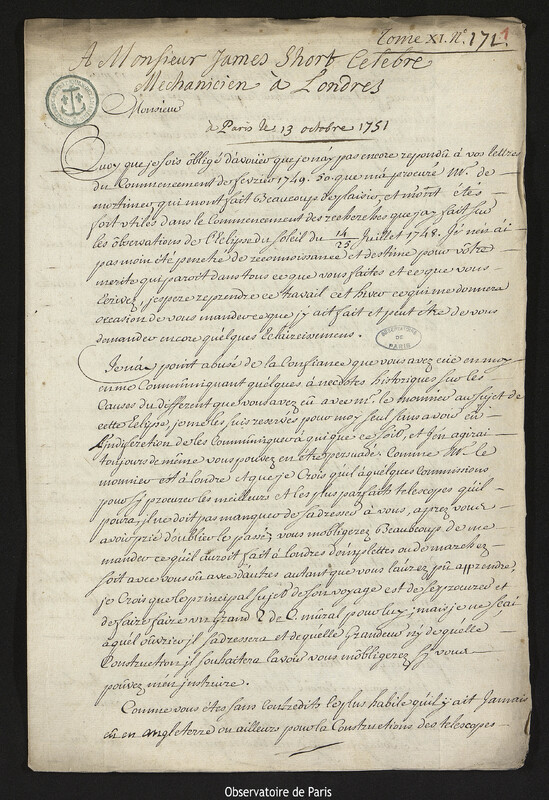 Tome XI. N.º 171.
A Monsieur James Short Celebre
Mechanicien à Londres
Monsieur
à Paris le 13 octobre 1751
Quoy que je sois obligé d'avoüer que je n'ay pas encore repondû à vos lettres
du Commencement de fevrier 1749. 50. que m'a procuré Mr. de
mortimer qui m'ont fait Beaucoup de plaisir, et m'ont étés
fort utiles dans le Commencement des recherches que j'ay fait sur
les observations de l'Eclipse du Soleil du 14/25 Juillet 1748. Je n'en ai
pas moin été penetré de reconnoissance et d'estime pour vôtre
merite qui paroit dans tous ce que vous faites et ce que vous
Ecrivez, j'espere reprendre ce travail cet hiver ce qui me donnera
occasion de vous mander ce que j'y ait fait et peut être de vous
demander encore quelques Eclaircissemens.
OBSERVATOIRE DE PARIS
Je n'ay point abusé de la Confiance que vous avez eüe en moy
en me Communiquant quelques anecdotes historiques sur les
Causes du different que vous avez eû avec Mr. le monnier au sujet de
cette Eclipse, je me les suis reservés pour moy seul sans avoir eû
l'indiscretion de les Communiquer à qui que ce soit, et j'en agirai
toujours de même vous pouvez en être persuadé. Comme Mr. le
monnier est à londre et que je Crois qu'il à quelques commissions
pour s'y procurer les meilleurs et les plus parfaits telescopes qu'il
poura, il ne doit pas manquer de s'adresser à vous, aprez vous
avoir prié d'oublier le passé, vous m'obligerez Beaucoup de me
mander ce qu'il auroit fait à londres d'emplettes ou de marchez
soit avec vous oû avec d'autres autant que vous l'aurez pû apprendre,
je Crois que le principal sujet de son voyage est de se procurer et
de faire faire un Grand Q. de C. mural pour luy, mais je ne sçai
à quel ouvrier il s'adressera et de quelle Grandeur ny de quelle
Construction il souhaitera l'avoir vous m'obligerez si vous
pouvez m'en instruire.
Comme vous êtes sans contredits le plus habile qu'il y ait Jamais
eû en Angleterre ou ailleurs pour la Constructions des telescopes
Observatoire de Paris